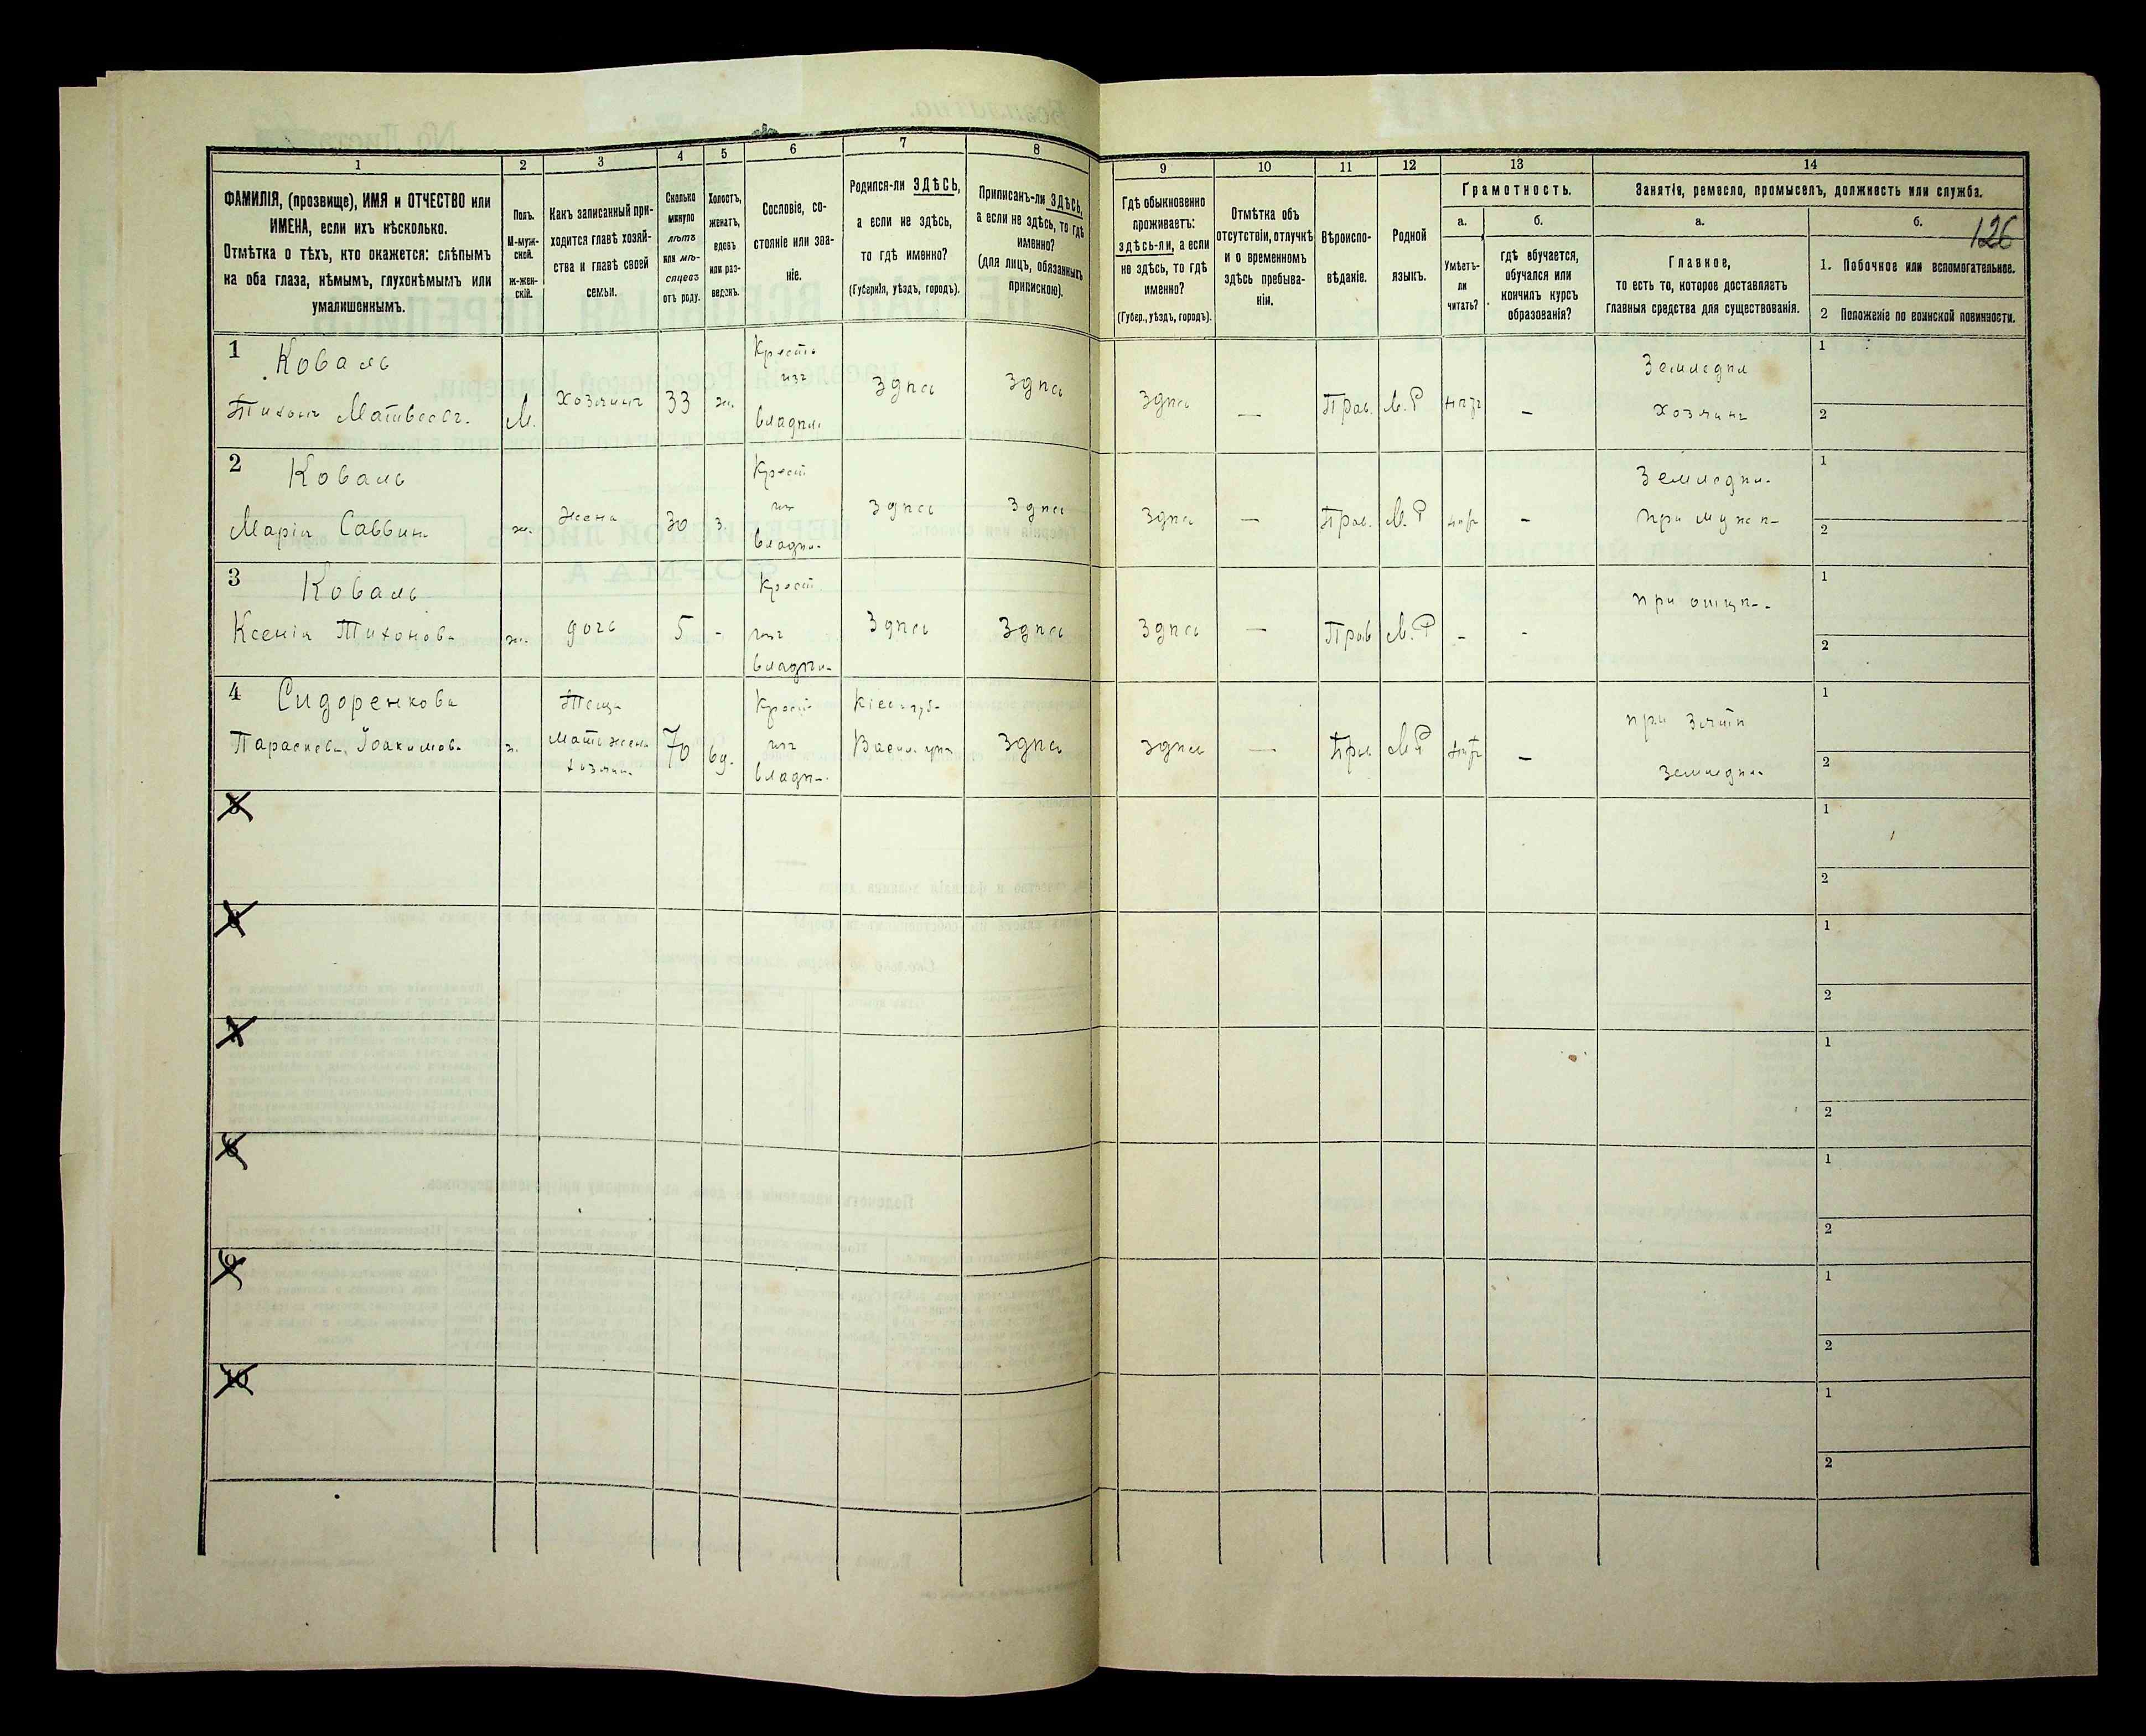 126
1
2
3
4
5
6
7
8
9
10
11
12
13
14
ФАМИЛІЯ, (прозвище), ИМЯ и ОТЧЕСТВО или
ИМЕНА, если ихъ нѣсколько.
Отмѣтка о тѣхъ, кто окажется: слѣпымъ
на оба глаза, нѣмымъ, глухонѣмымъ или
умалишеннымъ.
Полъ.
М-муж-
ской.
ж-жен-
скій.
Какъ записанный при-
ходится главѣ хозяй-
ства и главѣ своей
семьи.
Сколько
минуло
лѣтъ
или мѣ-
сяцевъ
отъ роду.
Холостъ,
женатъ,
вдовъ
или раз-
веденъ.
Сословіе, со-
стояніе или зва-
ніе.
Родился-ли ЗДѢСЬ,
а если не здѣсь,
то гдѣ именно?
(Губернія, уѣздъ, городъ).
Приписанъ-ли ЗДѢСЬ,
а если не здѣсь, то гдѣ
именно?
(для лицъ, обязанныхъ
припискою).
Гдѣ обыкновенно
проживаетъ:
здѣсь-ли, а если
не здѣсь, то гдѣ
именно?
(Губер., уѣздъ, городъ).
Отмѣтка объ
отсутствіи, отлучкѣ
и о временномъ
здѣсь пребыва-
ніи.
Вѣроиспо-
вѣданіе.
Родной
языкъ.
Грамотность.
а.
Умѣетъ-
ли
читать?
б.
гдѣ обучается,
обучался или
кончилъ курсъ
образованія?
Занятіе, ремесло, промыселъ, должность или служба.
а.
Главное,
то есть то, которое доставляетъ
главныя средства для существованія.
б.
1. Побочное или вспомогательное.
2 Положеніе по воинской повинности.
1 Коваль
Тихонъ Матвеевъ.
М.
Хозяинъ
33
ж.
Кресть
изъ
владѣл.
здѣсь
здѣсь
здѣсь
—
Прав.
М.Р
нѣтъ
—
Земледѣл
хозяинъ
1
2
2 Коваль
Марія Саввин.
ж.
жена
30
з.
Крест
изъ
владѣ.
здѣсь
здѣсь
здѣсь
—
Прав.
М.Р
нѣтъ
—
Земледѣл.
при мужѣ
1
2
3 Коваль
Ксенія Тихонова
ж.
дочь
5
-
Крест
изъ
владѣл.
здѣсь
здѣсь
здѣсь
—
Прав
М.Р
-
-
при отцѣ.
1
2
4 Сидоренкова
Параскева Іоакимова
ж.
Теща
Мать жены
хозяин.
70
вд.
Крест
изъ
владѣ.
Кіев. губ.
Васил. у.
здѣсь
здѣсь
—
Прав.
М.Р
нѣтъ
—
при зятѣ
земледѣл.
1
2
5
1
2
6
1
2
7
1
2
8
1
2
9
1
2
10
1
2